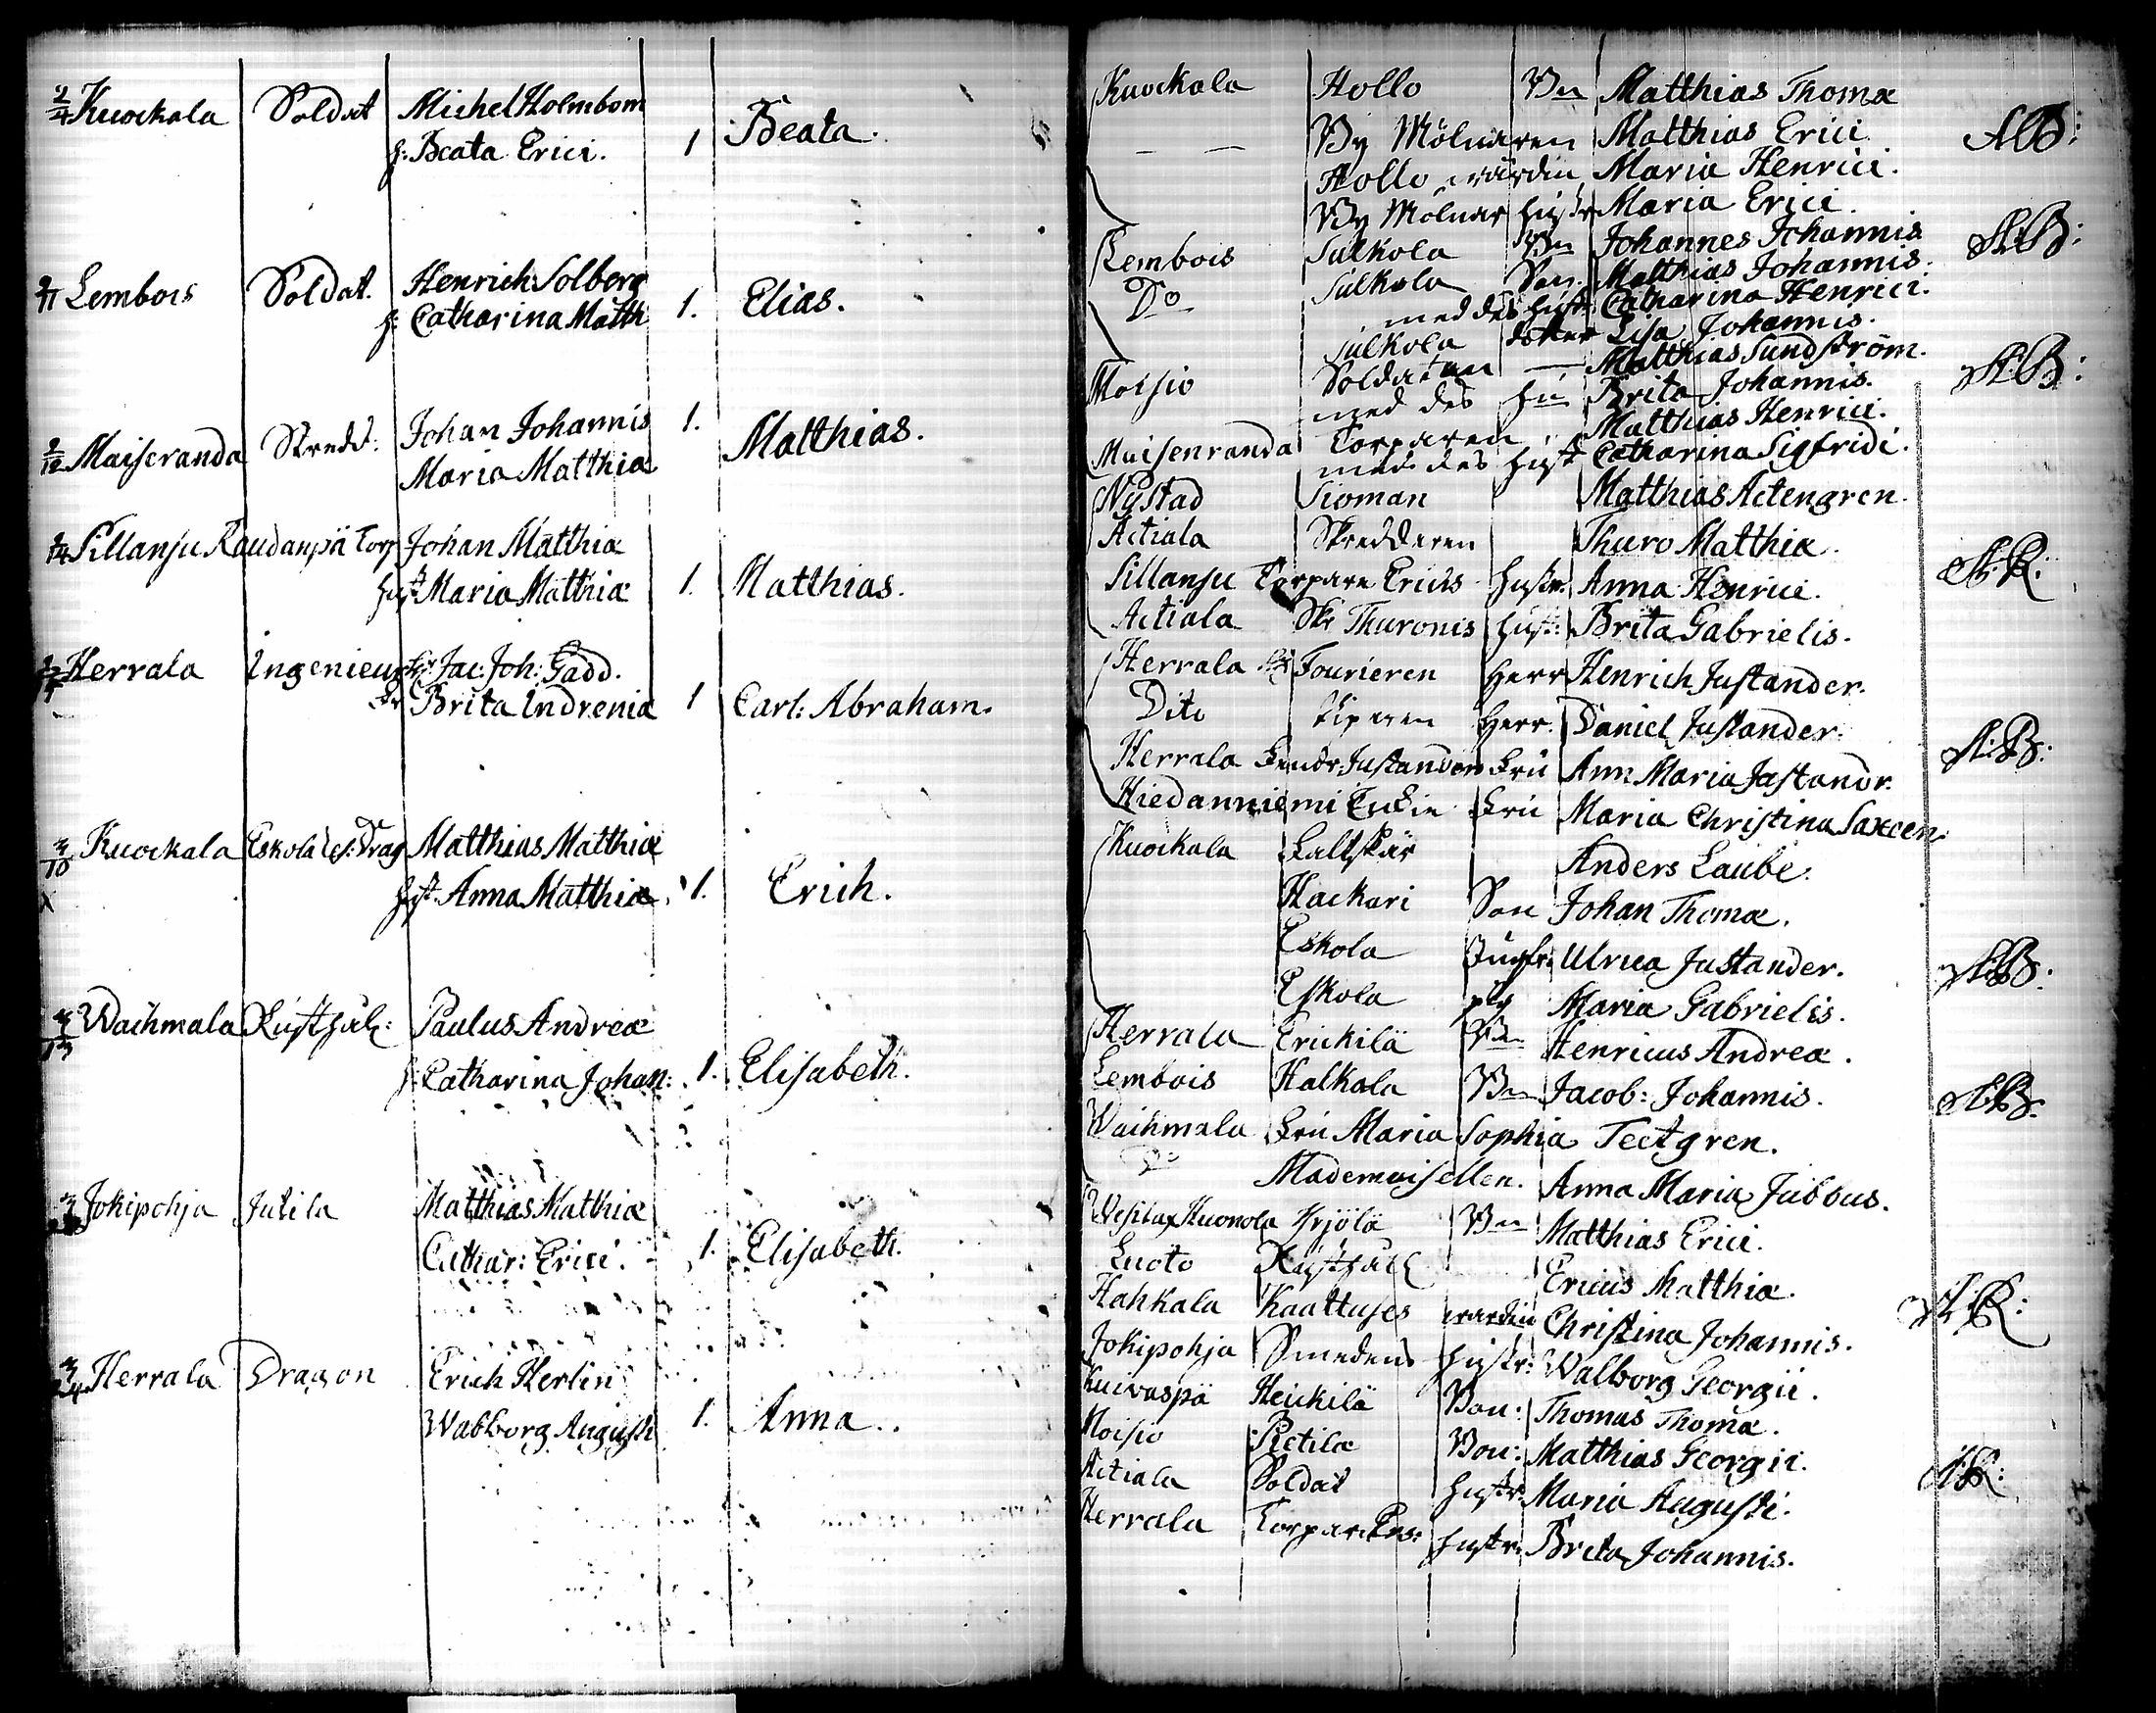 2/4 Kuockala Soldat Michel Holmbom
h: Beata Erici. 1 Beata.
2/11 Lembois Soldat. Henrich Solberg
h: Catharina Matth 1. Elias.
2/12 Maiseranda Skredd: Johan Johannis 1.
Maria Matthiæ Matthias.
2/14 Sillansu Raudanpä Torp Johan Matthiæ
hust Maria Matthiæ 1. Matthias.
Herrala Ingenieur Hr Jac: Joh: Gadd.
Fr Brita Indrenia 1 Carl: Abraham.
3/10 Kuockala Eskola Matthias Matthiæ
hust. Anna Matthiæ. 1. Erich.
3/13 Waihmala Rusthål: Paulus Andreæ
h: Catharina Johan: 1. Elisabeth.
Jokipohja Jutila Matthias Matthiæ
Cathar: Erici. 1. Elisabeth.
3/24 Herrala Dragon Erich Herlin
Wabborg Augusti 1. Anna.
Kuockala Hollo Bn Matthias Thomæ
By Mölnaren Matthias Erici A.B:
Hollo wärdin Maria Henrici.
By Mölnar hustr Maria Erici.
Lembois Sulkola Bn Johannes Johannis A.B:
Do Sulkola Son. Matthias Johannis.
med des hustr Catharina Henrici.
Sulkola dotter Lisa Johannis.
Moisio Soldaten — Matthias Sundström. A.B:
med des hu Brita Johannis.
Muisenranda Torparen Matthias Henrici.
med des hust Catharina Sigfridi.
Nystad Sioman Matthias Aetengren.
Aetiala Skredderen Thuro Matthiæ.
Sillansu Torpare Ericis hustr. Anna Henrici. A.R.
Aetiala Skr Thuronis hust: Brita Gabrielis.
Herrala Fourieren Herr Henrich Justander.
Dito Herr. Daniel Justander.
Herrala Fendr: Justanders Fru Ann: Maria Justandr. A.B:
Hiedanniemi Enkie Fru Maria Christina Saxeen.
Kuockala Faltskär Anders Laube.
Hackari Son Johan Thomæ.
Eskola Jungfr: Ulrica Justander. A.B.
Eskola pig Maria Gabrielis.
Herrala Erickilä Bn Henricus Andreæ.
Lembois Halkala Bn Jacob: Johannis. A.B.
Waihmala Fru Maria Sophia Teetgren.
Do Mademoisellen. Anna Maria Jubbus.
Wesilax Huonola Yrjölä Bn Matthias Erici.
Luoto Rusthåll Ericus Matthiæ.
Hahkala Kaattuses wärdin Christina Johannis. A.R:
Jokipohja Smedens hustr: Walborg Georgii.
Kuivaspä Heickilä Bon: Thomas Thomæ.
Moisio Pietilæ Bon: Matthias Georgii.
Aetiala Soldat hustr. Maria Augusti. A.R:
Herrala Torpar Ers: hustr. Brita Johannis.